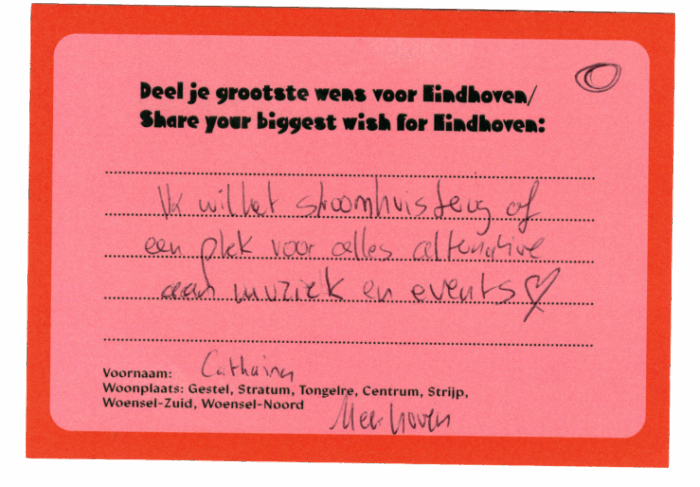 Deel je grootste wens voor Eindhoven/
Share your biggest wish for Eindhoven:
Ik wil het stroomhuis terug of
een plek voor alles alternative
aan muziek en events♡
Voornaam: Catharina
Woonplaats: Gestel, Stratum, Tongelre, Centrum, Strijp,
Woensel-Zuid, Woensel-Noord
Meerhoven